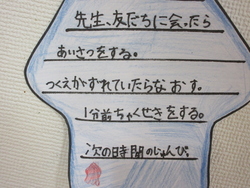 先生、友だちに会ったら
あいさつをする。
つくえがずれていたらなおす。
1分前ちゃくせきをする。
次の時間のじゅんび。